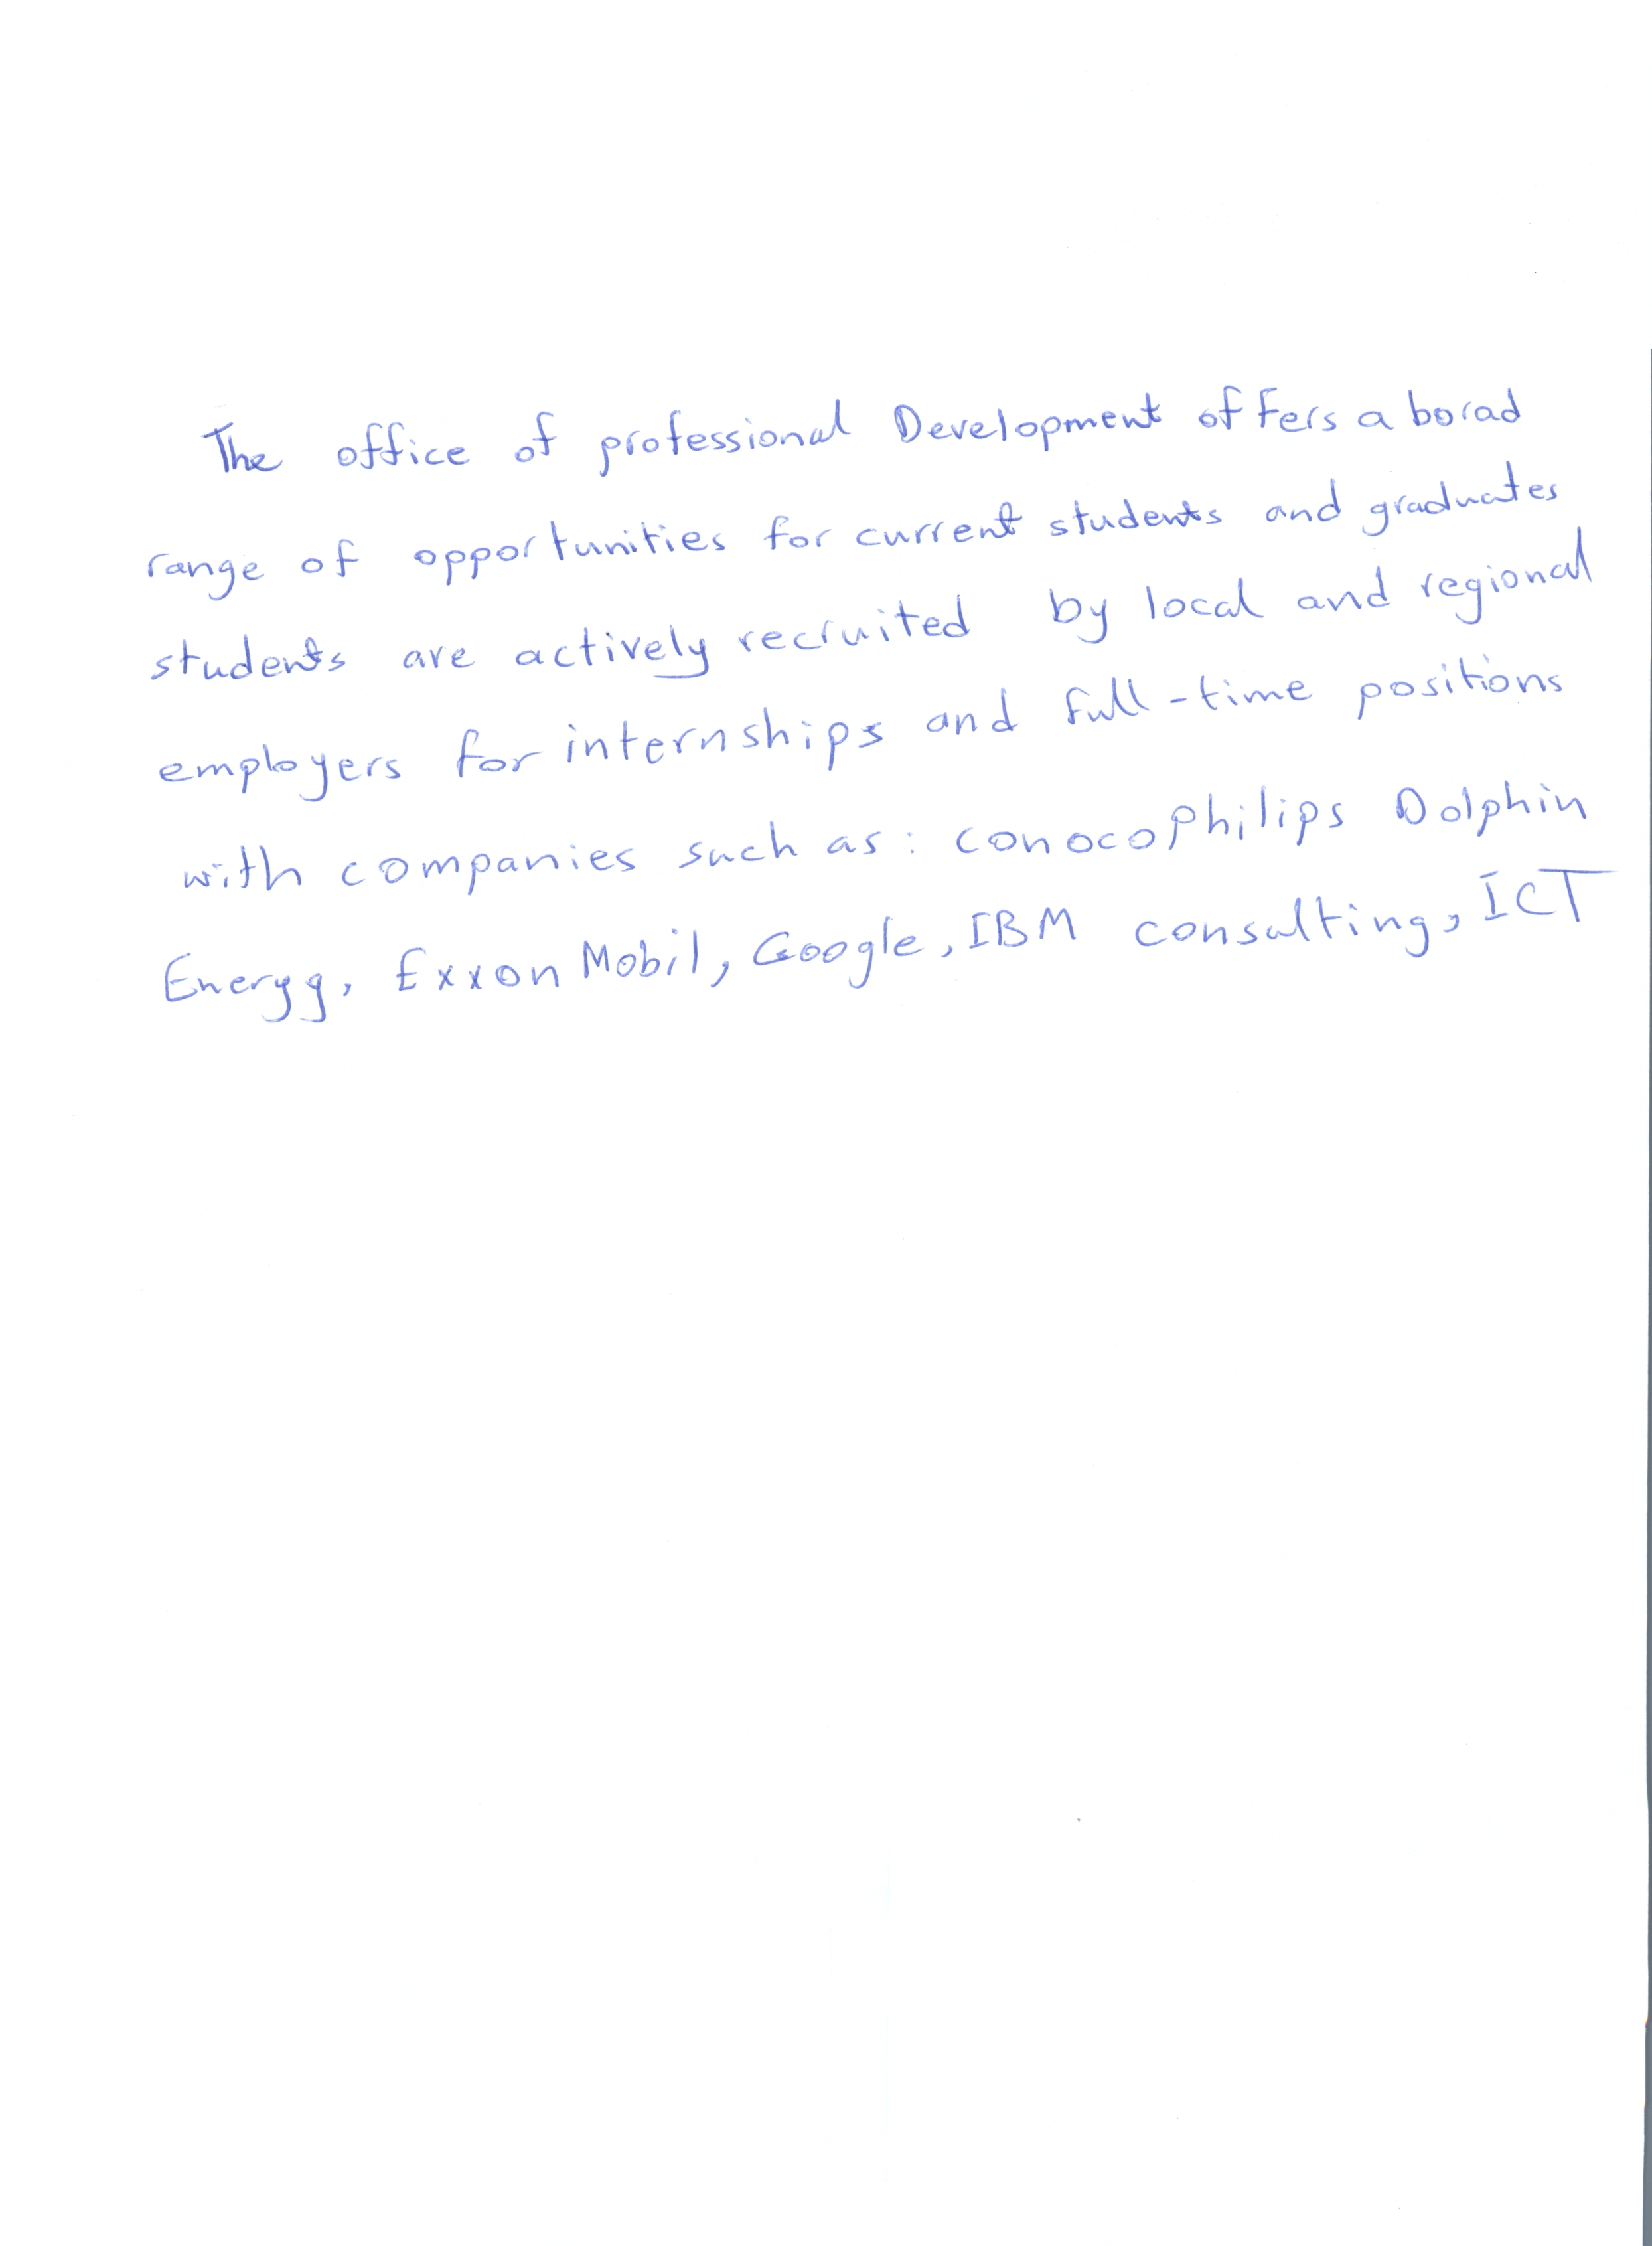 The office of professional Development offers a borad
range of opportunities for current students and graduates
students are actively recruited by local and regional
employers for internships and full-time positions
with companies such as: conocophilips Dolphin
Energy, Exxon Mobil, Google, IBM consulting, ICT